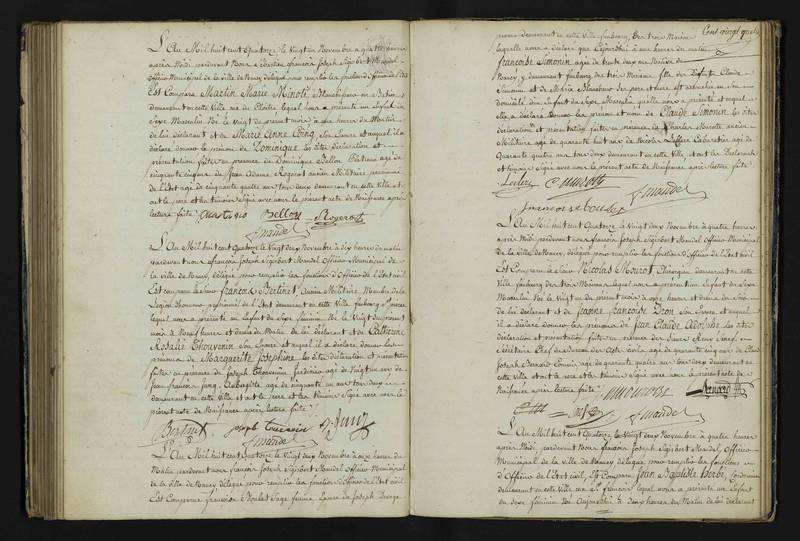 L'An Mil huit cent Quatorze le Vingt un Novembre à quatre heures
après Midi, pardevant Nous Sébastien françois Joseph Sigisbert Mandel
Officier Municipal de la ville de Nancy délégué pour remplir les fonctions d'Officier de l'Etat
Est Comparu Martin Marie Minoti,
demeurant en cette Ville rue du Cloître lequel nous a présenté un Enfant du
Sexe Masculin Né le Vingt du présent mois à une heure du Matin
de lui déclarant et de Marie Anne son Epouse et auquel il a
déclaré donner le prénom de Dominique les dites déclaration et
présentation faites en présence de Dominique Bellon agé de
cinquante Jean Adame Rogerot ancien Militaire pensionné
de l'Etat agé de cinquante quatre ans tous deux demeurant en cette Ville et
ont le pere et les témoins signé avec nous le présent acte de Naissance après
lecture faite Bellon Rogerot
Mandel
L'An Mil huit cent Quatorze le Vingt deux Novembre à dix heures du matin
pardevant nous françois Joseph Sigisbert Mandel Officier Municipal de
la Ville de Nancy, délégué pour remplir les fonctions d'Officier de l'Etat civil
Est comparu le Sieur François Bertinet, Ancien Militaire, Membre de la
Légion d'honneur pensionné de l'Etat demeurant en cette Ville faubourg St pierre
lequel nous a présenté un Enfant du Sexe féminin Né le Vingt du présent
mois à Neuf heures et demie du Matin de lui déclarant et de Catherine
Rosalie Thouvenin son Epouse et auquel il a déclaré donner les
prénoms de Marguerite Josephine les dites déclaration et présentation
faites en présence de Joseph Thouvenin Jardinier agé de Vingt un ans de
Jean françois agé de cinquante un ans tous deux
demeurant en cette Ville et ont le pere et les témoins Signé avec nous le
présent acte de Naissance après lecture faite
Bertinet joseph
Mandel
L'An Mil huit cent Quatorze le Vingt deux Novembre à onze heures du
Matin, pardevant nous françois Joseph Sigisbert Mandel Officier Municipal
de la Ville de Nancy délégué pour remplir les fonctions d'Officier de l'Etat civil
Est Comparue françoise Sage femme, Epouse de Joseph
Cent vingt
demeurant en cette Ville faubourg des trois Maisons
laquelle nous a déclaré que aujourd'hui à une heure du matin
françoise Simonin agée de trente deux ans Native de
Nancy, y demeurant faubourg des trois Maisons fille des défunts Claude
Simonin et de Marie et est accouchée en son
domicile d'un Enfant du Sexe Masculin quelle nous a présenté et auquel
elle a déclaré donner les prénom et nom de Claude Simonin, les dites
déclaration et présentation faites en présence de Charles Marotte ancien
Militaire agé de quarante huit ans de Nicolas Leclerc Cabaretier agé de
Quarante quatre ans tous deux demeurant en cette Ville et ont les Déclarante
et témoins Signé avec nous le présent acte de Naissance après lecture faite
Leclerc
Mandel
L'An Mil huit cent Quatorze le Vingt deux Novembre à quatre heures
après Midi, pardevant nous françois Joseph Sigisbert Mandel Officier Municipal
de la Ville de Nancy, délégué pour remplir les fonctions d'Officier de l'Etat civil
Est Comparu le Sieur Nicolas Mourot Chirurgien, demeurant en cette
Ville faubourg des trois Maisons lequel nous a présenté un Enfant du Sexe
Masculin Né le Vingt un du présent mois à onze heures et demie du Soir
de lui déclarant et de Jeanne françoise Dron Son Epouse et auquel
il a déclaré donner les prénoms de Jean Claude Adolphe les dites
déclaration et présentation faites en présence des Sieurs
Secrétaire Chef de Bureau agé de quarante cinq ans de Claude
Joseph Bernard Commis, agé de quarante quatre ans tous deux demeurant en
cette Ville et ont le pere et les témoins Signé avec nous le présent acte de
Naissance après lecture faite Mourot Bernard
Mandel
L'An Mil huit cent Quatorze le Vingt deux Novembre à quatre heures
après Midi, pardevant Nous françois Joseph Sigisbert Mandel, Officier
Municipal de la Ville de Nancy délégué pour remplir les fonctions
d'Officier de l'Etat civil, Est Comparu Jean Baptiste Cordonnier
demeurant en cette Ville rue St françois lequel nous a présenté un Enfant
du Sexe féminin Né Aujourd'hui à deux heures du Matin de lui déclarant